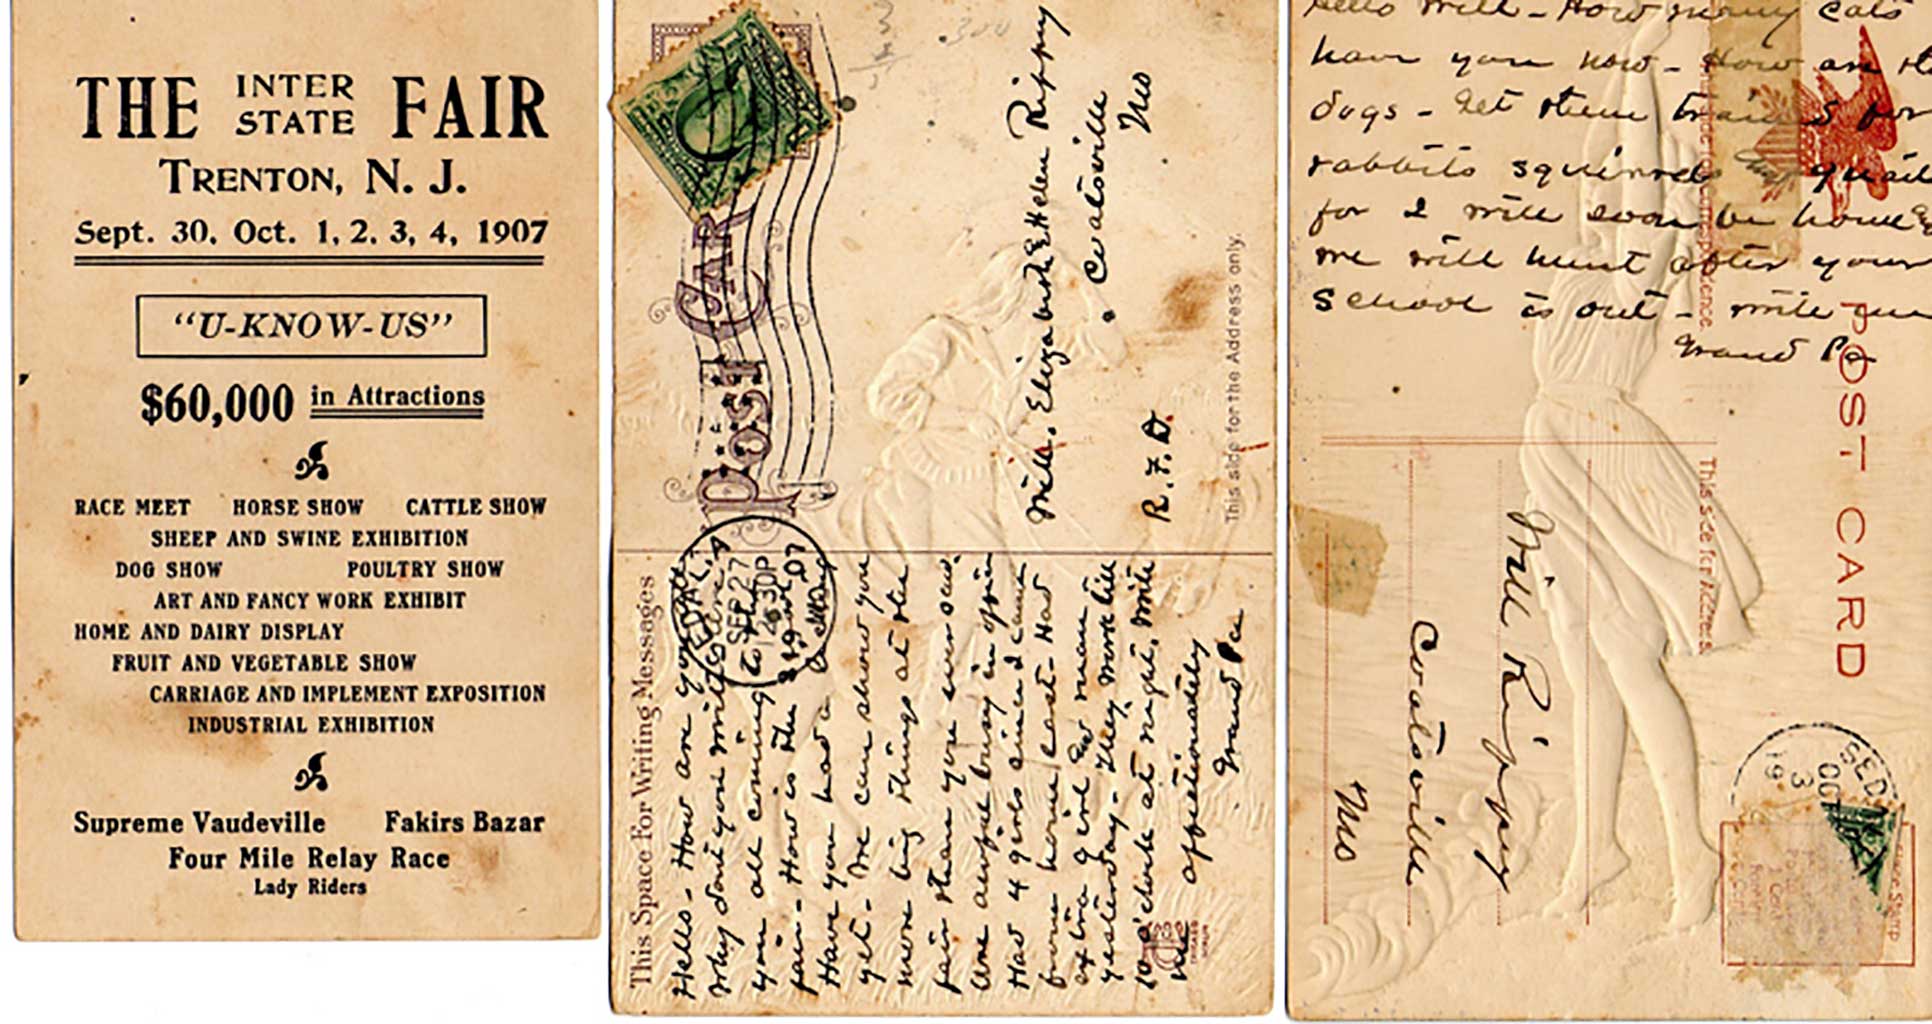 THE INTER STATE FAIR
TRENTON, N. J.
Sept. 30, Oct. 1, 2, 3, 4, 1907
"U-KNOW-US"
$60,000 in Attractions
RACE MEET HORSE SHOW CATTLE SHOW
SHEEP AND SWINE EXHIBITION
DOG SHOW POULTRY SHOW
ART AND FANCY WORK EXHIBIT
HOME AND DAIRY DISPLAY
FRUIT AND VEGETABLE SHOW
CARRIAGE AND IMPLEMENT EXPOSITION
INDUSTRIAL EXHIBITION
Supreme Vaudeville Fakirs Bazar
Four Mile Relay Race
Lady Riders
POST CARD
This side for the Address only.
Will. Elizabeth & Helen Rippy
Coatsville
Mo
R. F. D.
SEDALIA
SEP 27
12 30P
07
This Space For Writing Messages
Hello - How are you
Why dont you write are
you all coming to the
fair - How is the
Have you had a
yet - We can show you
more big things at the
fair than you ever saw.
are awful busy in
Had 4 girls since I came
from home last - Had
extra girl & man
yesterday - They work till
10 o'clock at night. Write
me
affectionately
Grand Pa
Hello Will - How many cats
have you now - How are the
dogs - Get them trained for
rabbits squirrels quail
for I will soon be home &
we will hunt after your
school is out - write
Grand Pa
POST CARD
This side for Address
Will Rippy
Coatsville
Mo
SED
OCT
3
19